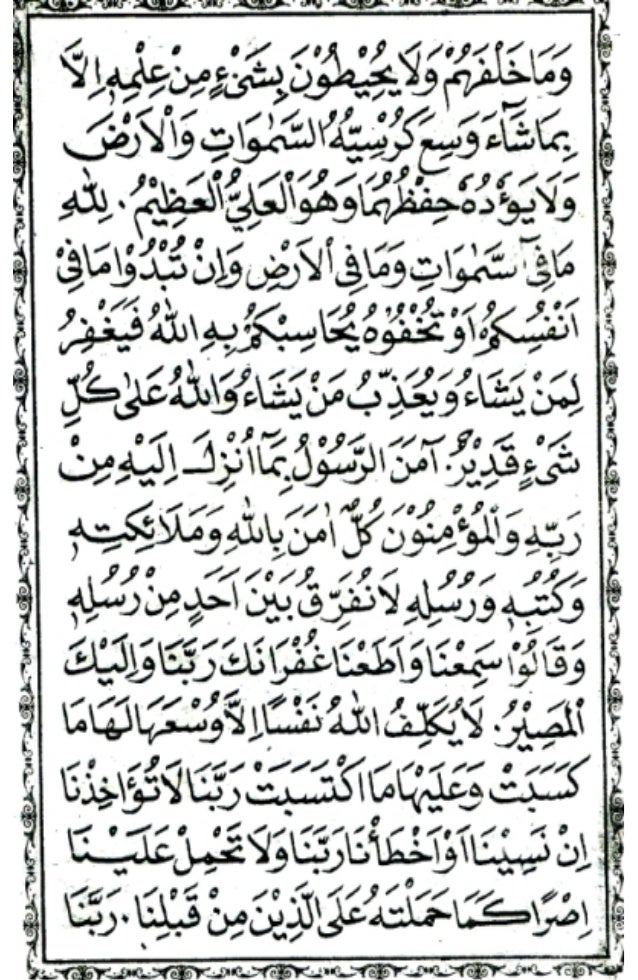 وَمَا خَلْفَهُمْ وَلَا يُحِيْطُوْنَ بِشَىْءٍ مِنْ عِلْمِهٖ اِلَّا
بِمَا شَآءَ وَسِعَ كُرْسِيُّهُ السَّمٰوَاتِ وَالْاَرْضَ
وَلَا يَؤُدُهٗ حِفْظُهُمَا وَهُوَ الْعَلِيُّ الْعَظِيْمُ. لِلّٰهِ
مَا فِى آسَّمٰوَاتِ وَمَا فِى الْاَرْضِ وَاِنْ تُبْدُوْا مَا فِىْ
اَنْفُسِكُمْ اَوْ تُخْفُوْهُ يُحَاسِبْكُمْ بِهِ اللّٰهُ فَيَغْفِرُ
لِمَنْ يَشَاءُ وَيُعَذِّبُ مَنْ يَشَاءُ وَاللّٰهُ عَلٰى كُلِّ
شَىْءٍ قَدِيْرٌ. آمَنَ الرَّسُوْلُ بِمَآ اُنْزِلَ اِلَيْهِ مِنْ
رَبِّهٖ وَالْمُؤْمِنُوْنَ كُلٌّ اٰمَنَ بِاللّٰهِ وَمَلَائِكَتِهٖ
وَكُتُبِهٖ وَرُسُلِهٖ لَا نُفَرِّقُ بَيْنَ اَحَدٍ مِنْ رُسُلِهٖ
وَقَالُوْا سَمِعْنَا وَاَطَعْنَا غُفْرَانَكَ رَبَّنَا وَاِلَيْكَ
الْمَصِيْرُ. لَا يُكَلِّفُ اللّٰهُ نَفْسًا اِلَّا وُسْعَهَا لَهَا مَا
كَسَبَتْ وَعَلَيْهَا مَا اكْتَسَبَتْ رَبَّنَا لَا تُؤَاخِذْنَا
اِنْ نَسِيْنَا اَوْ اَخْطَأْنَا رَبَّنَا وَلَا تَحْمِلْ عَلَيْنَا
اِصْرًا كَمَا حَمَلْتَهُ عَلَى الَّذِيْنَ مِنْ قَبْلِنَا. رَبَّنَا